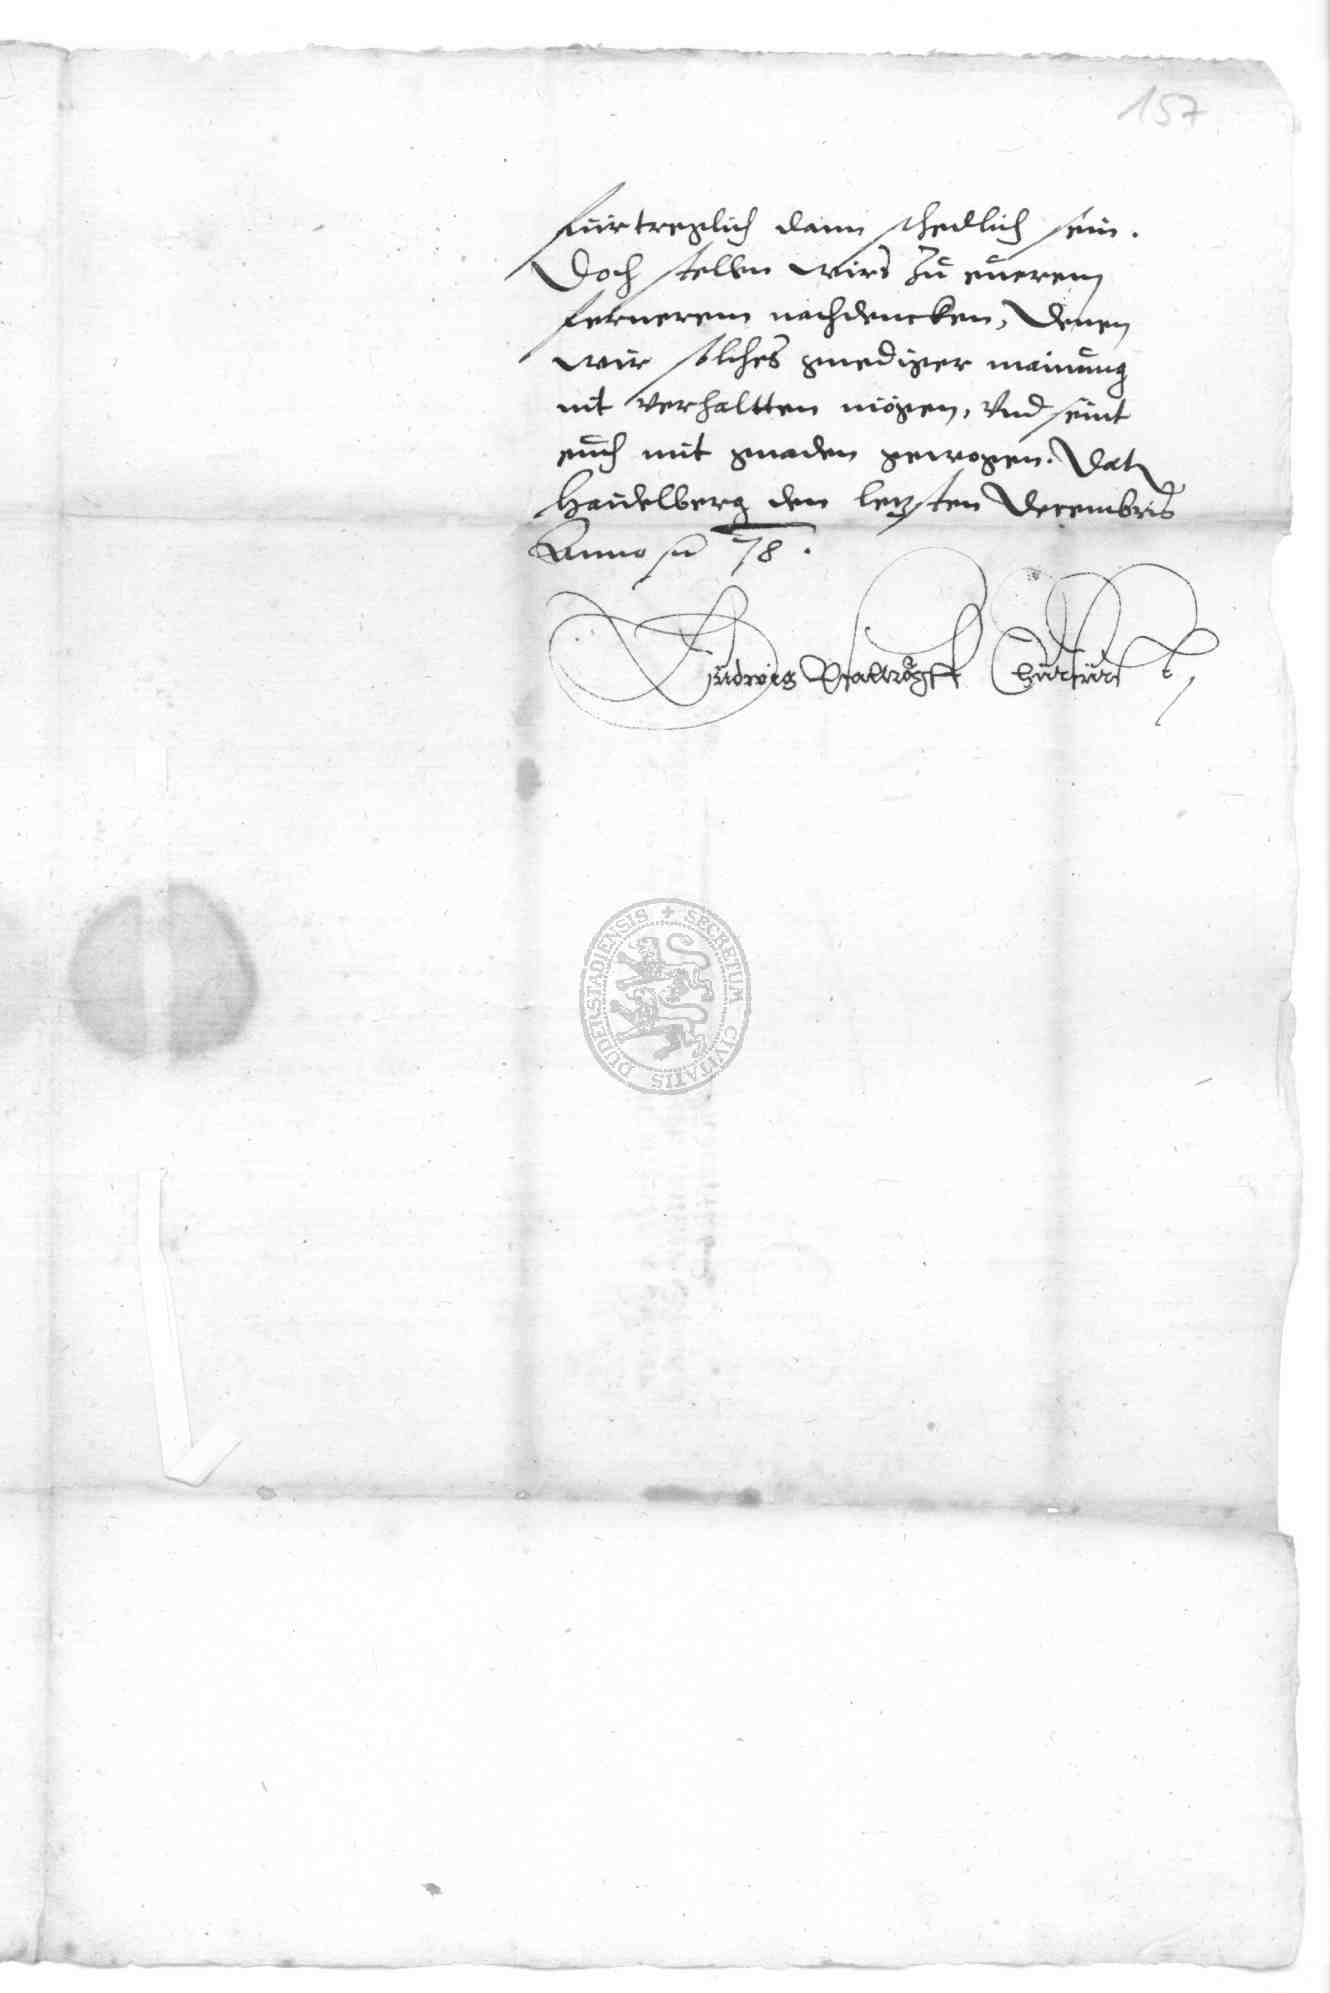 157
fürtreglich dann schedlich sein.
Doch stellen wirs zu euerem
fernerem nachdencken, Denen
wir solches gnediger mainung
nit verhaltten mögen, Vnd seint
euch mit gnaden gewogen. Dat
Haidelberg den letzsten Decembris
Anno 78.
Ludwig Pfaltzgff Churfürst
SECRETUM CIVITATIS DUDERSTADIENSIS